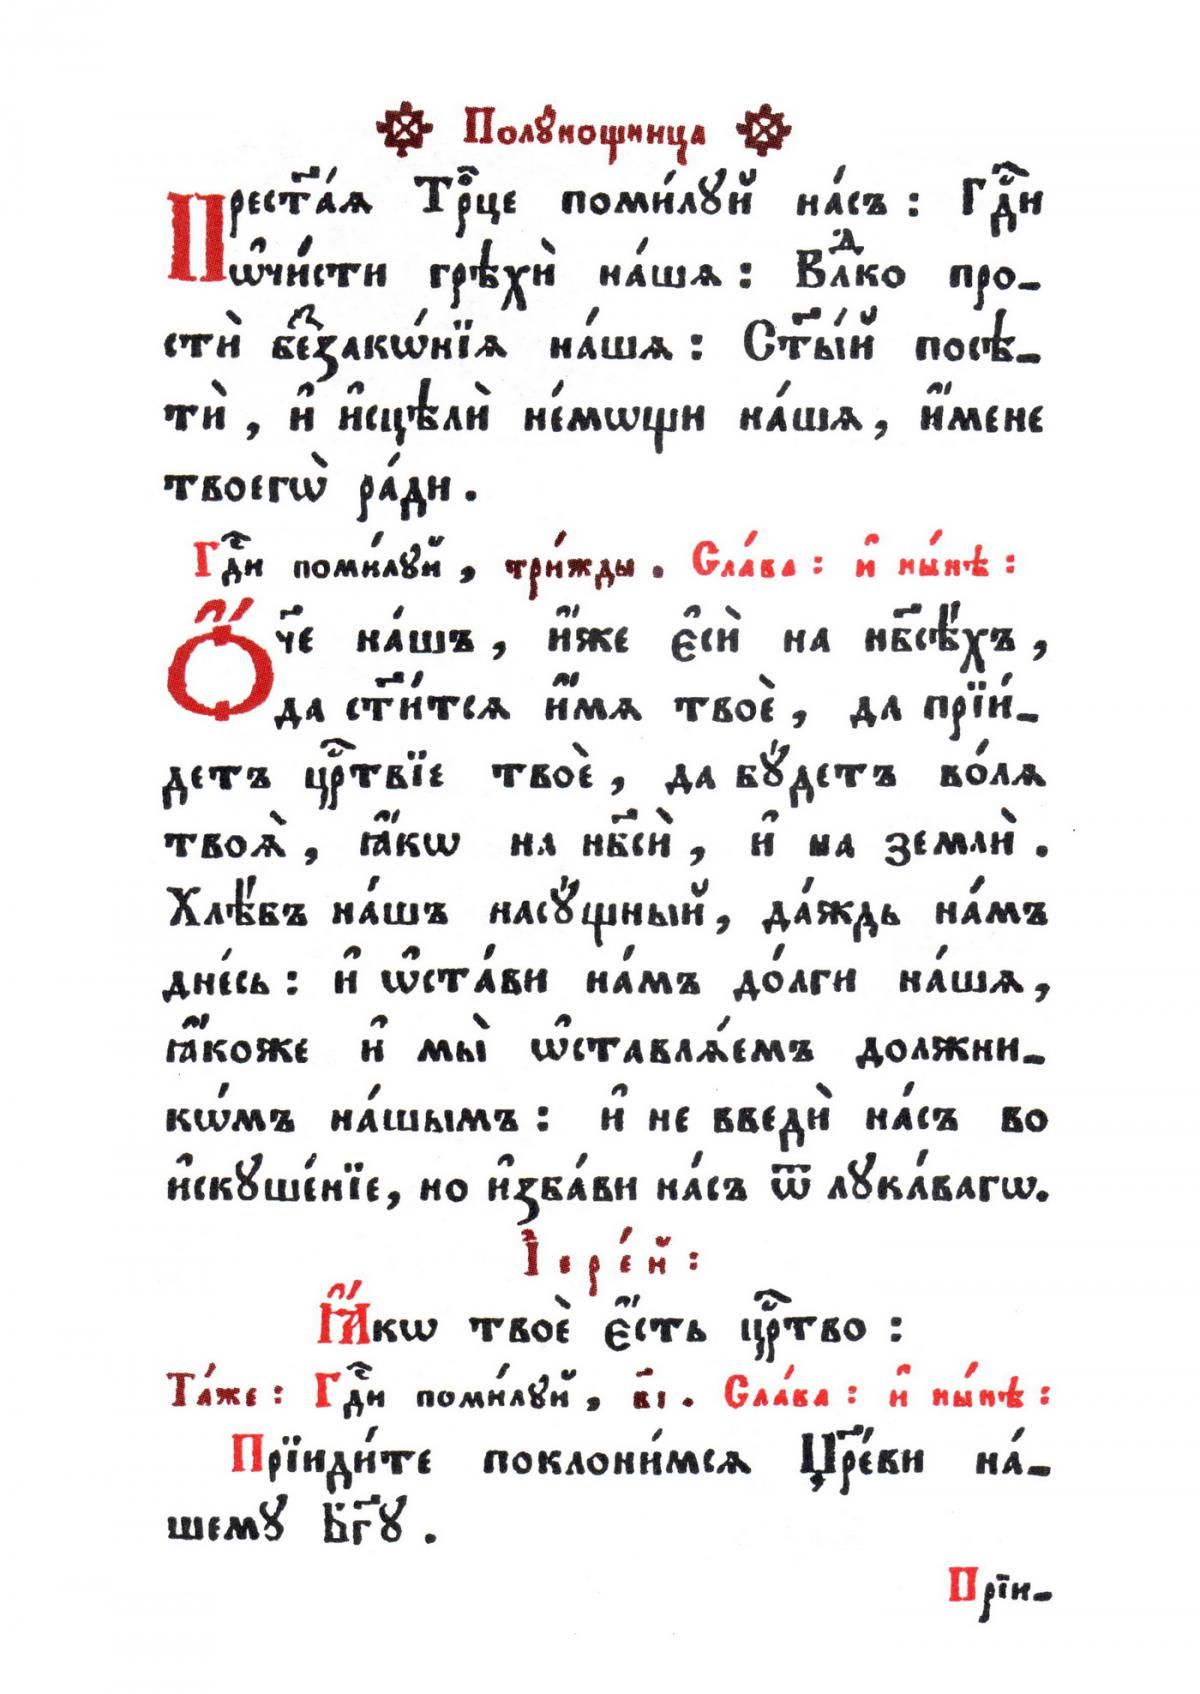 Полꙋ́нощница
Прест҃а́ѧ Трⷪ҇це поми́лꙋй на́съ: Гдⷭ҇и
ѡ҆чи́сти грѣхѝ на́шѧ: Влⷣко про_
стѝ беꙁⷥако́нїѧ на́шѧ: Ст҃ы́й посѣ_
тѝ, и҆ и҆сцѣлѝ не́мѡщи на́шѧ, и҆́мене
твоегѡ̀ ра́ди.
Гдⷭ҇и поми́лꙋй, три́жды. Сла́ва: и҆ ны́нѣ:
Ѻ҆́ч҃е на́шъ, и҆́же є҆сѝ на нб҃сѣ́хъ,
да ст҃и́тсѧ и҆́мѧ твоѐ, да прїи́_
детъ црⷭ҇твїе твоѐ, да бꙋ́детъ во́лѧ
твоѧ̀, ꙗ҆́кѡ на нб҃сѝ, и҆ на землѝ.
Хлѣ́бъ на́шъ насꙋ́щный, да́ждь на́мъ
дне́сь: и҆ ѡ҆ста́ви на́мъ до́лги на́шѧ,
ꙗ҆́коже и҆ мы̀ ѡ҆ставлѧ́емъ должни_
кѡ́мъ на́шымъ: и҆ не введѝ на́съ во
и҆скꙋше́нїе, но и҆зба́ви на́съ ѿ лꙋка́вагѡ.
І҆ере́й:
Ꙗ҆́кѡ твоѐ є҆́сть црⷭ҇тво:
Та́же: Гдⷭ҇и поми́лꙋй, в҃і. Сла́ва: и҆ ны́нѣ:
Прїиди́те поклони́мсѧ Цр҃е́ви на́_
шемꙋ Бг҃ꙋ.
Прїи_